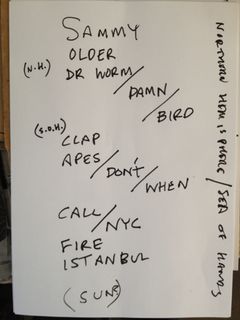 SAMMY
OLDER
(N.H.) DR WORM/
DAMN/
BIRD
(S.O.H.) CLAP
APES/
DON'T/
WHEN
CALL/NYC
FIRE
ISTANBUL
(SUN)
NORTHERN HEMISPHERE/SEA OF HANDS